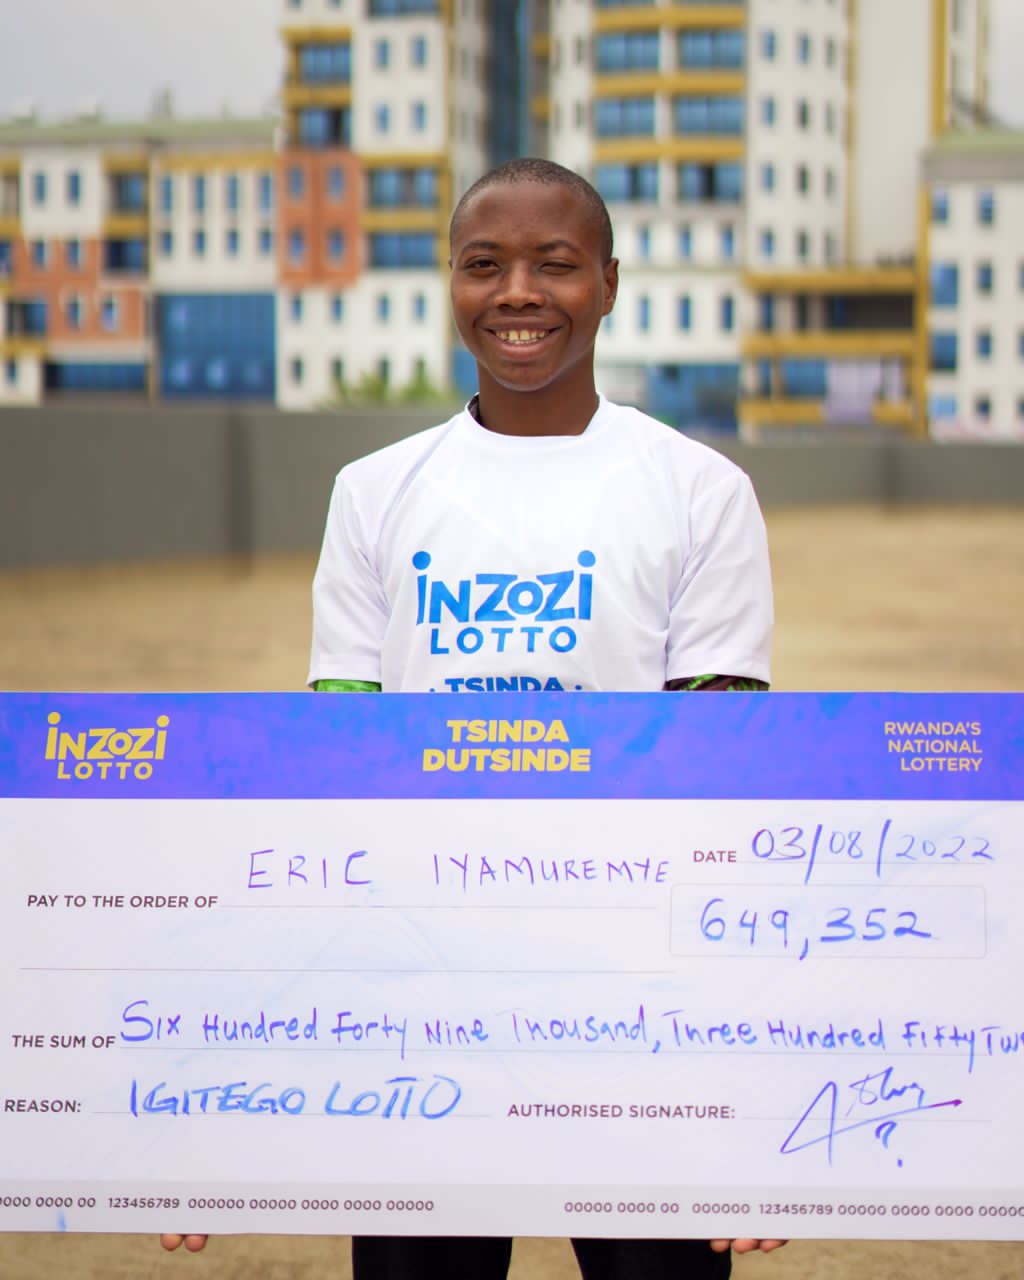 inzozi
LOTTO
· TSINDA ·
inzozi
LOTTO
TSINDA
DUTSINDE
RWANDA'S
NATIONAL
LOTTERY
PAY TO THE ORDER OF ERIC IYAMUREMYE
DATE 03/08/2022
649,352
THE SUM OF Six Hundred Forty Nine Thousand, Three Hundred Fifty Tw
REASON: IGITEGO LOTTO
AUTHORISED SIGNATURE:
0000 0000 00 123456789 000000 00000 0000 0000 0000 00000
00000 0000 00 000000 123456789 00000 0000 0000 0000 00000